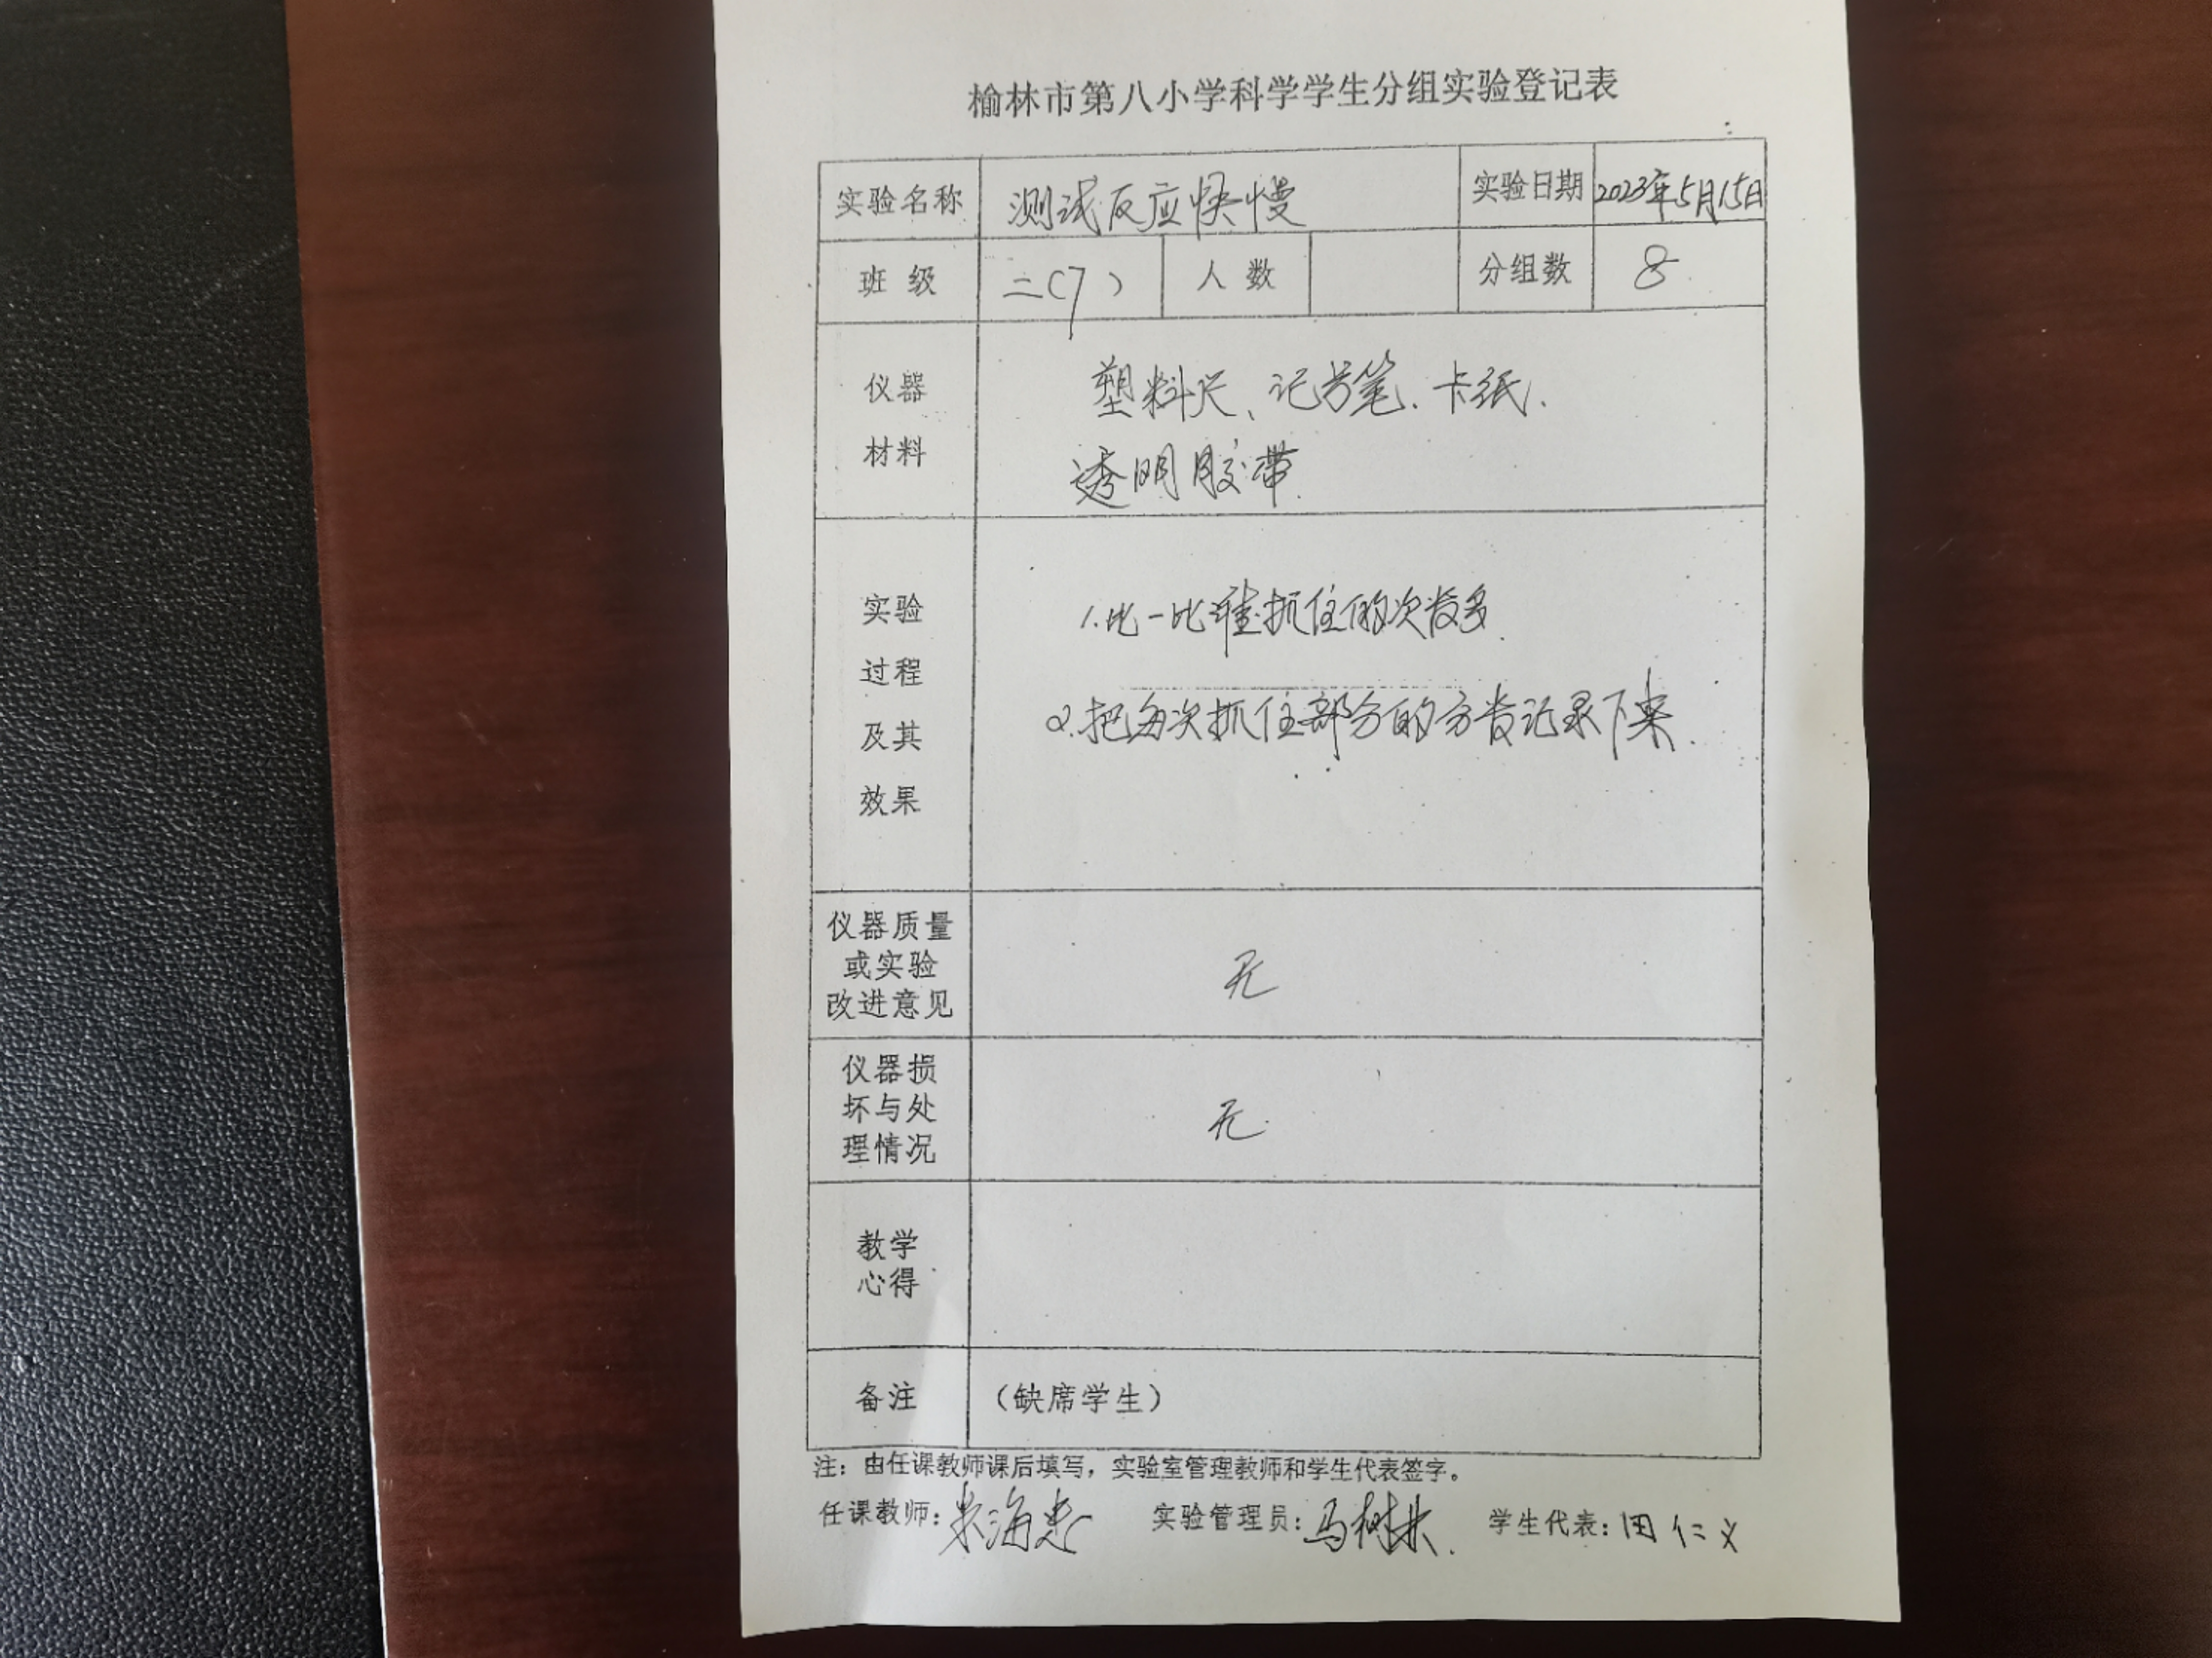 榆林市第八小学科学学生分组实验登记表
实验名称 测试反应快慢 实验日期 2023年5月15日
班级 二(7) 人数 分组数 8
仪器
材料
塑料尺、记号笔、卡纸、
透明胶带
实验
过程
及其
效果
1.比一比谁抓住的次数多
2.把每次抓住部分的分数记录下来.
仪器质量
或实验
改进意见
无
仪器损
坏与处
理情况
无
教学
心得
备注 (缺席学生)
注：由任课教师课后填写，实验室管理教师和学生代表签字。
任课教师： 实验管理员：马树林 学生代表：田仁义